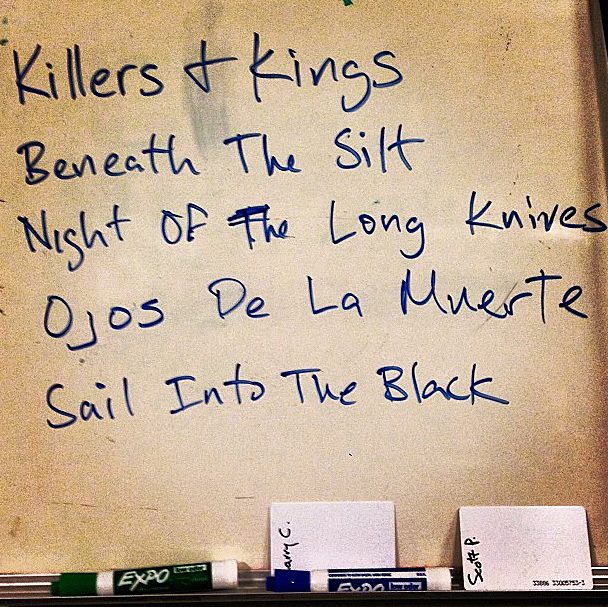 Killers + Kings
Beneath The Silt
Night Of The Long Knives
Ojos De La Muerte
Sail Into The Black
arry C.
Scott P.
33886 33005753-3
EXPO
EXPO